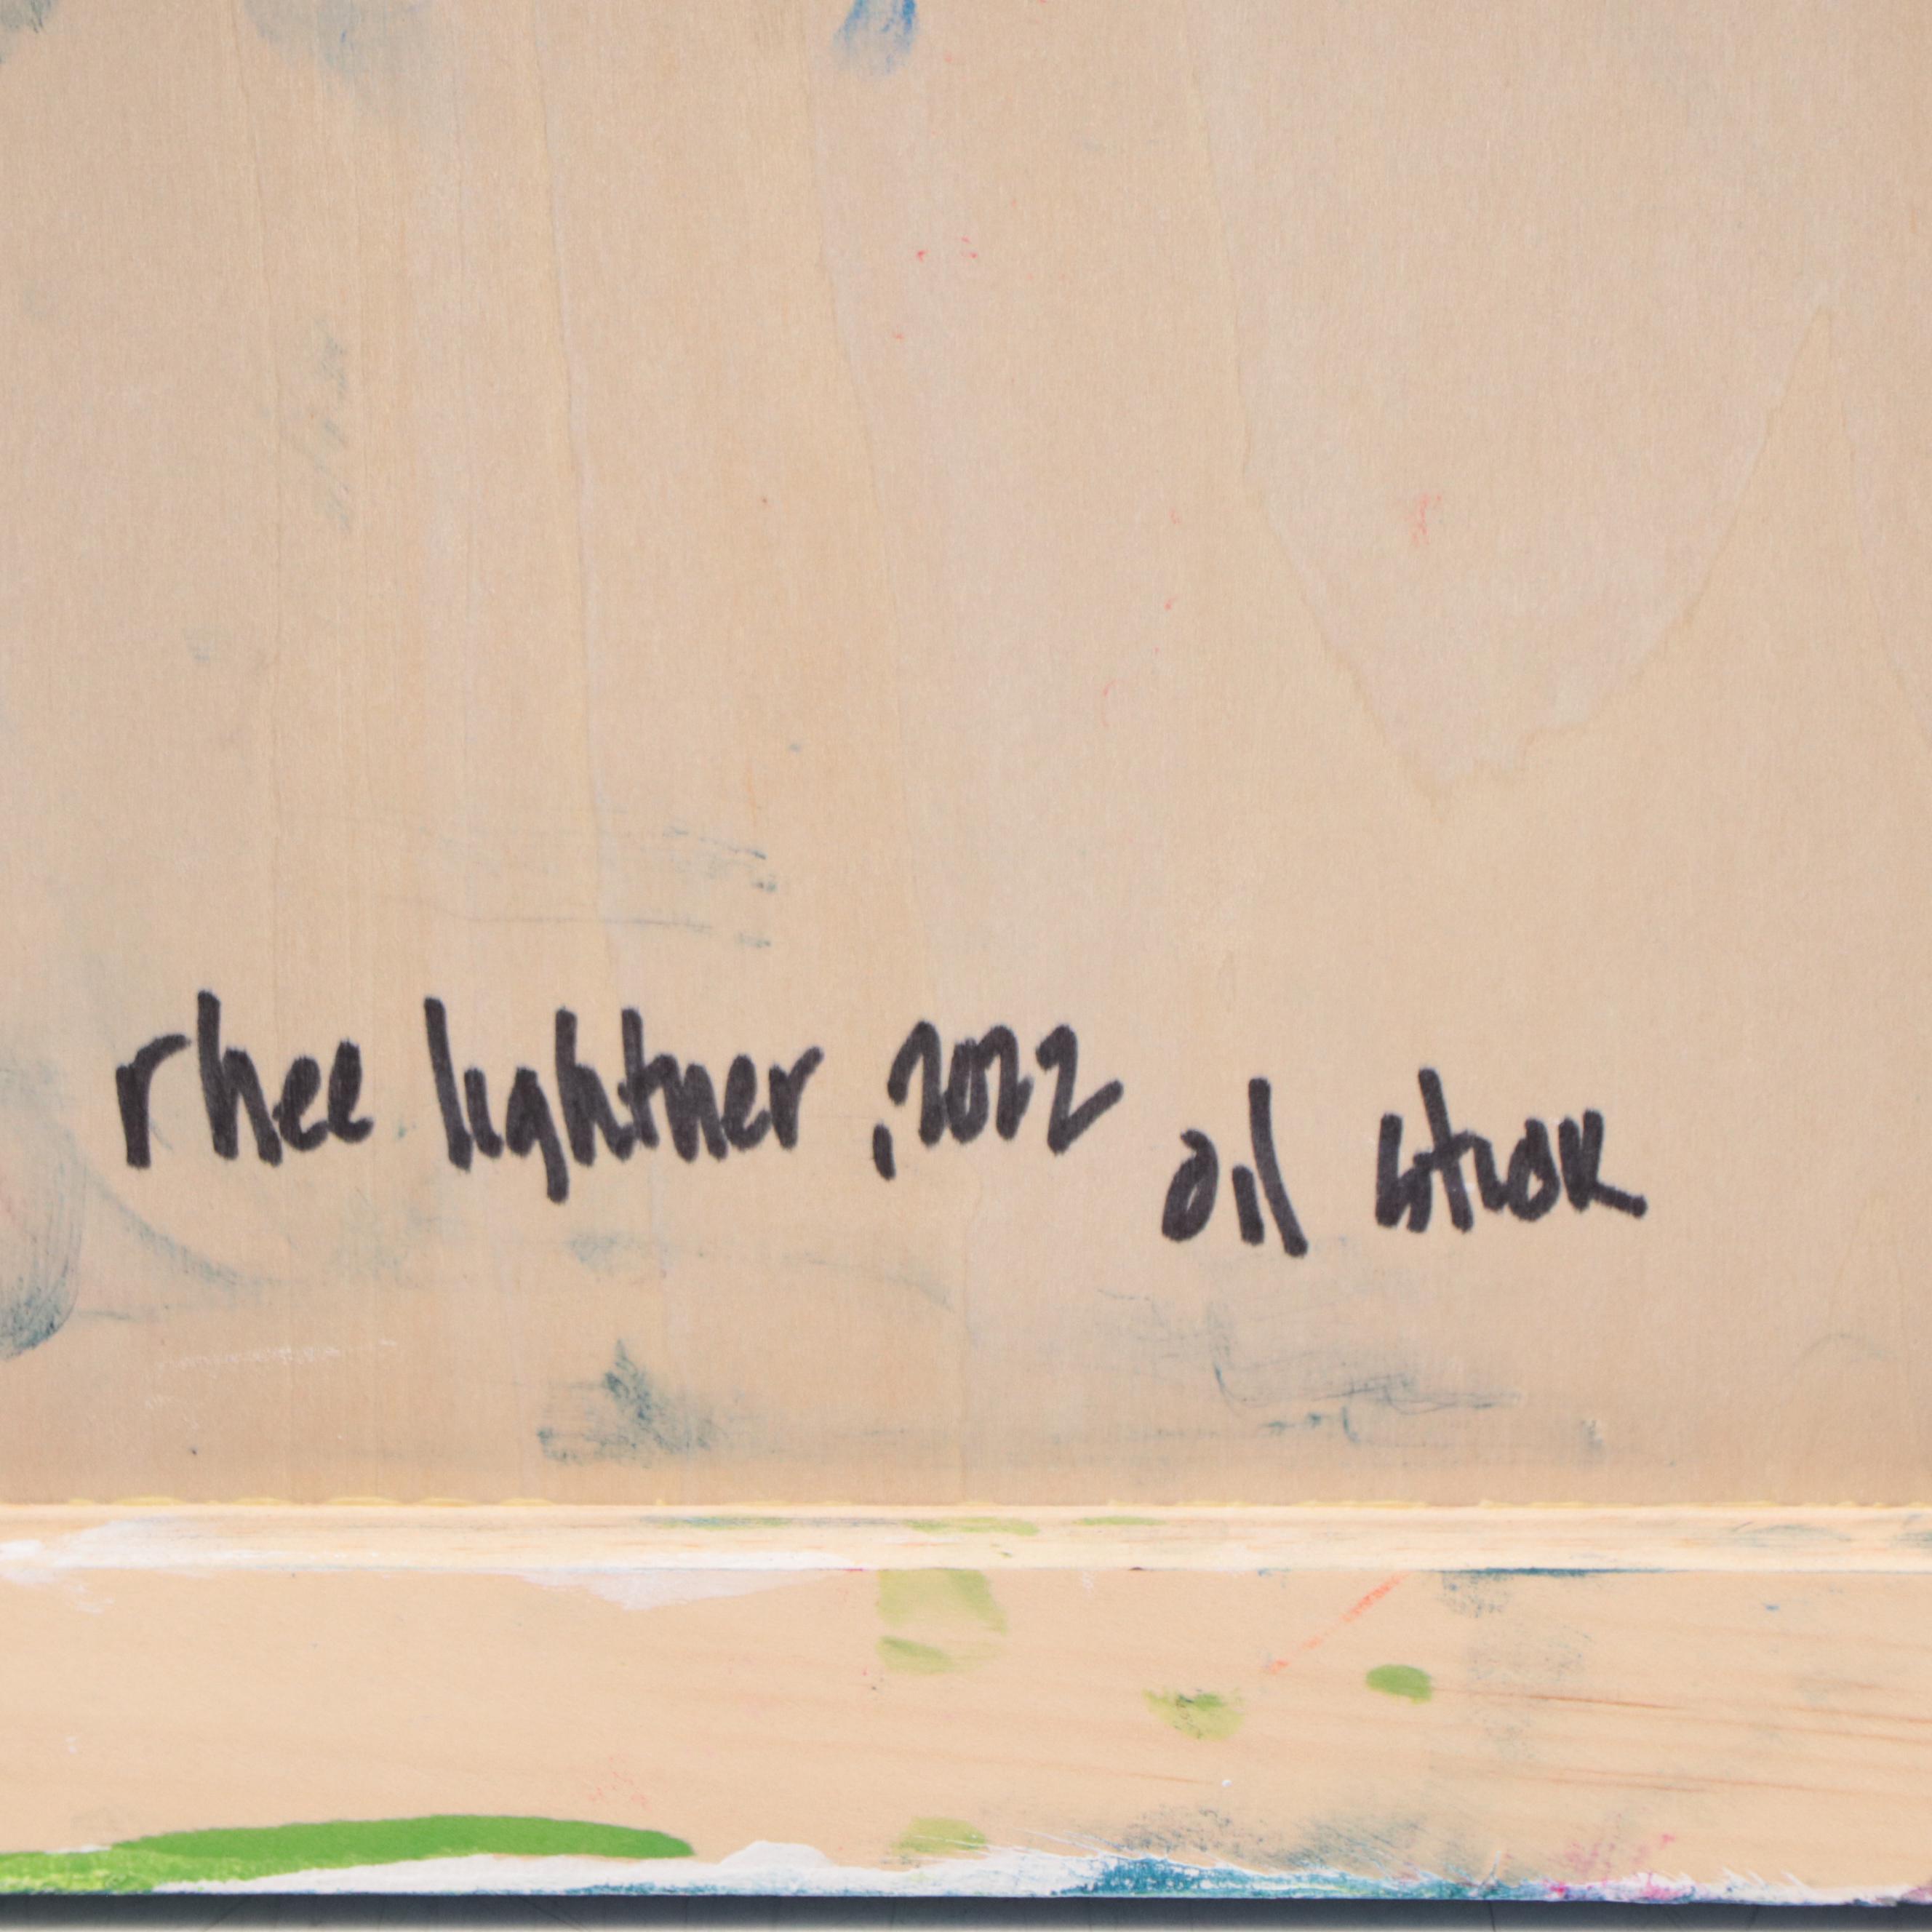 rhee lightner, 2022 oil stick